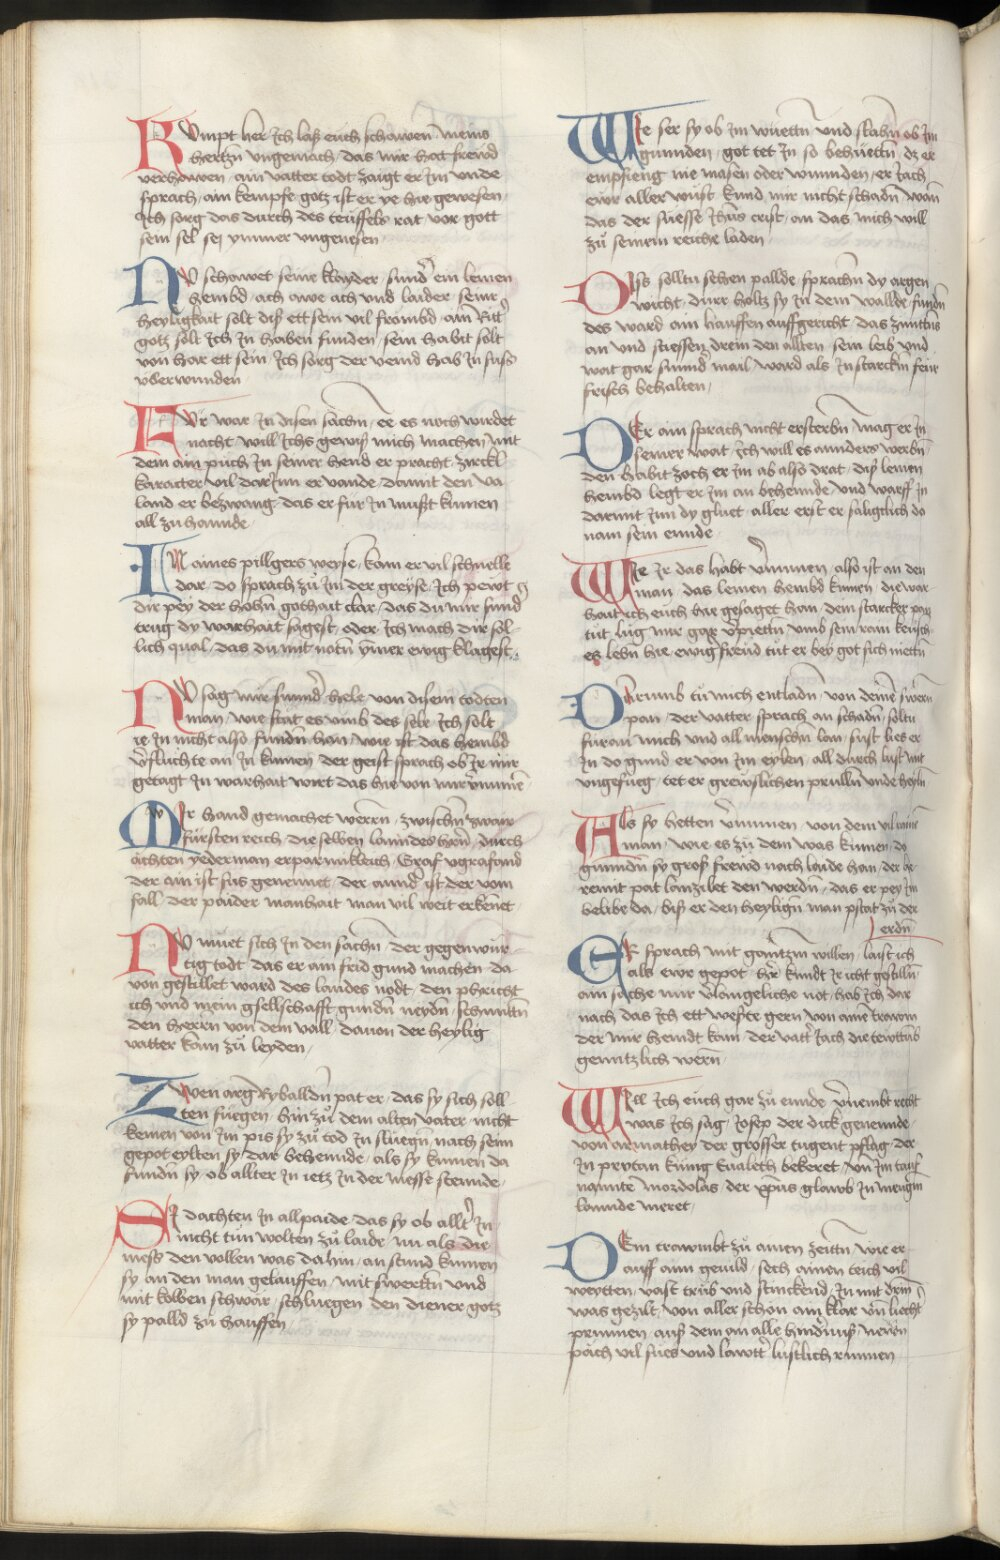 Kumpt her Ich laß euch schawen meins
hertzn ungemach das mir hat freud
verhawen ain vatter todt zaigt er Im unde
sprach ain kempfe gotz ist er ye hie gewesen
Ich sorg das durch des teuffels rat vor gott
sein sel sej ymmer ungenesen
NU schawet seine klayder sunder ein leinen
hembd ach awe ach und laider seiner
heyligkait solt diß ett sein vil frombd ain Ritter
gotz solt Ich In haben funden sein habit solt
von har ett sein Ich sorg der veind hab In sust
uberwunden
FUr war In disen sachn ee es noch wirdet
nacht will Ichs gewiß mich machen mit
dem ain puch In seiner hend er pracht zirckl
karacter vil dar Inn er vande damit den va
land er bezwang das er fur In must kumen
all zu hannde
IN aines pillgers weyse kam er vil schnelle
dar do sprach zu Im der greyse Ich pewt
dir pey der hohn gothait clar das du mir sunder
trug dy warhait sagest oder Ich mach dir sol
lich qual das du mit notn ymer ewig klagest
NU sag mir sunder hele von disem todten
man wie stat es umb des sele Ich solt
ie In nicht also fundn han wie ist das hembd
verfluchte an In kumen der geist sprach ob Ir mir
getagt In warhait wirt das hie von mir vernumen
Wir hand gemachet werrn zwischn zwair
fursten reich die selben lanndes hern durch
achten yederman erparmikleich Graf ugrasand
der ain ist sus genennet der annder ist der vom
fall der paider manhait man vil weit erkennet
NU muet sich In den sachn der gegenwür
tig todt das er ain frid gund machen da
von gestillet ward des landes nodt den phricht
ich und mein gsellschafft gundn neydn schunttn
den herrn von dem vall davon der heylig
vatter kam zu leyden
Zwen arg Ryballdn pat er das sy sich soll
ten fuegen hin zu dem alten vater nicht
kemen von Im pis sy zu tod In sluegn nach seim
gepot eylten sy dar behennde als sy kumen da
fundn sy ob allter In ietz In der messe steennde
SI dachten In all paide das sy ob allter In
nicht tun wolten zu laide nu als die
mess den vollen was da hin an stund kumen
sy an den man gelauffen mit swertn und
mit kolben schwar schluegen den diener gotz
sy palld zu hauffen
WIe ser sy ob Im wuettn und slahn ob Im
gunnden got tet In so behuettn dz er
empfieng nie masen oder wunnden er Jach
ewr aller wust kund mir nicht schadn wan
das der suesse Jhus crist an das mich will
zu seinem reiche laden
DIss solltu sehen pallde sprachn dy argen
wicht durr holtz sy In dem wallde fundn
des ward ain hauffen auffgericht das zuntens
an und stiessen drein den allten sein leib und
wat gar sunder mail ward als In starckm feur
frisch behalten
DEr ain sprach nicht ersterbn mag er In
seiner wat Ich will es annders werbn
den habit zoch er Im ab also drat diß leinen
hembd legt er Im an behennde und warff In
darmit Inn dy gluet aller erst er säligklich do
nam sein ennde
WIe Ir das habt vernumen also ist an den
man das leinen hembd kumen die war
hait ich euch hie gesaget han dem starcker pan
tut lug mir gar verpiettn umb sein rain keusch
es lebn hie ewig freud tut er bey got sich niettn
DArumb tu mich entladn von deinem swern
pan der vatter sprach an schadn soltu
furan mich und all menschn lan sust lies er
In do gund er von Im eylen all durch lust mit
ungefueg tet er grewslichen prulln unde heyln
Als sy hetten vernumen von dem vil
man wie es zu dem was kumen do
gunndn sy groß frewd nach laide han der
remit pat lanzilet den werdn das er pey Im
belibe da biß er den heylign man pstat zu der
erdn
ER sprach mit gantzm willen laist ich
als ewr gepot hie kundt Ir icht gestilln
ain sache mir verlangeliche not hab Ich dar
nach das Ich ett weste gern von aim trawm
der mir heindt kam der vatter Jach die tewttnus
genntzlich wern
WIll Ich euch gar zu ennde vernembt recht
was Ich sag Josep der dick genennde
von armathey der grosser tugent pflag der
In prytan kunig Eualeth bekeret von Im tauf
nannte mordolas der cristns glawb In mengem
lannde meret
DEm trawmbt zu ainen zeittn wie er
auff aim gevild sech ainen teich vil
weytten vast trub und stinckend In mit
was gezilt von aller schon ain klar und liecht
prunnen auß dem an alle hindernuß newn
pach vil sues und lawtter lustlich runnen